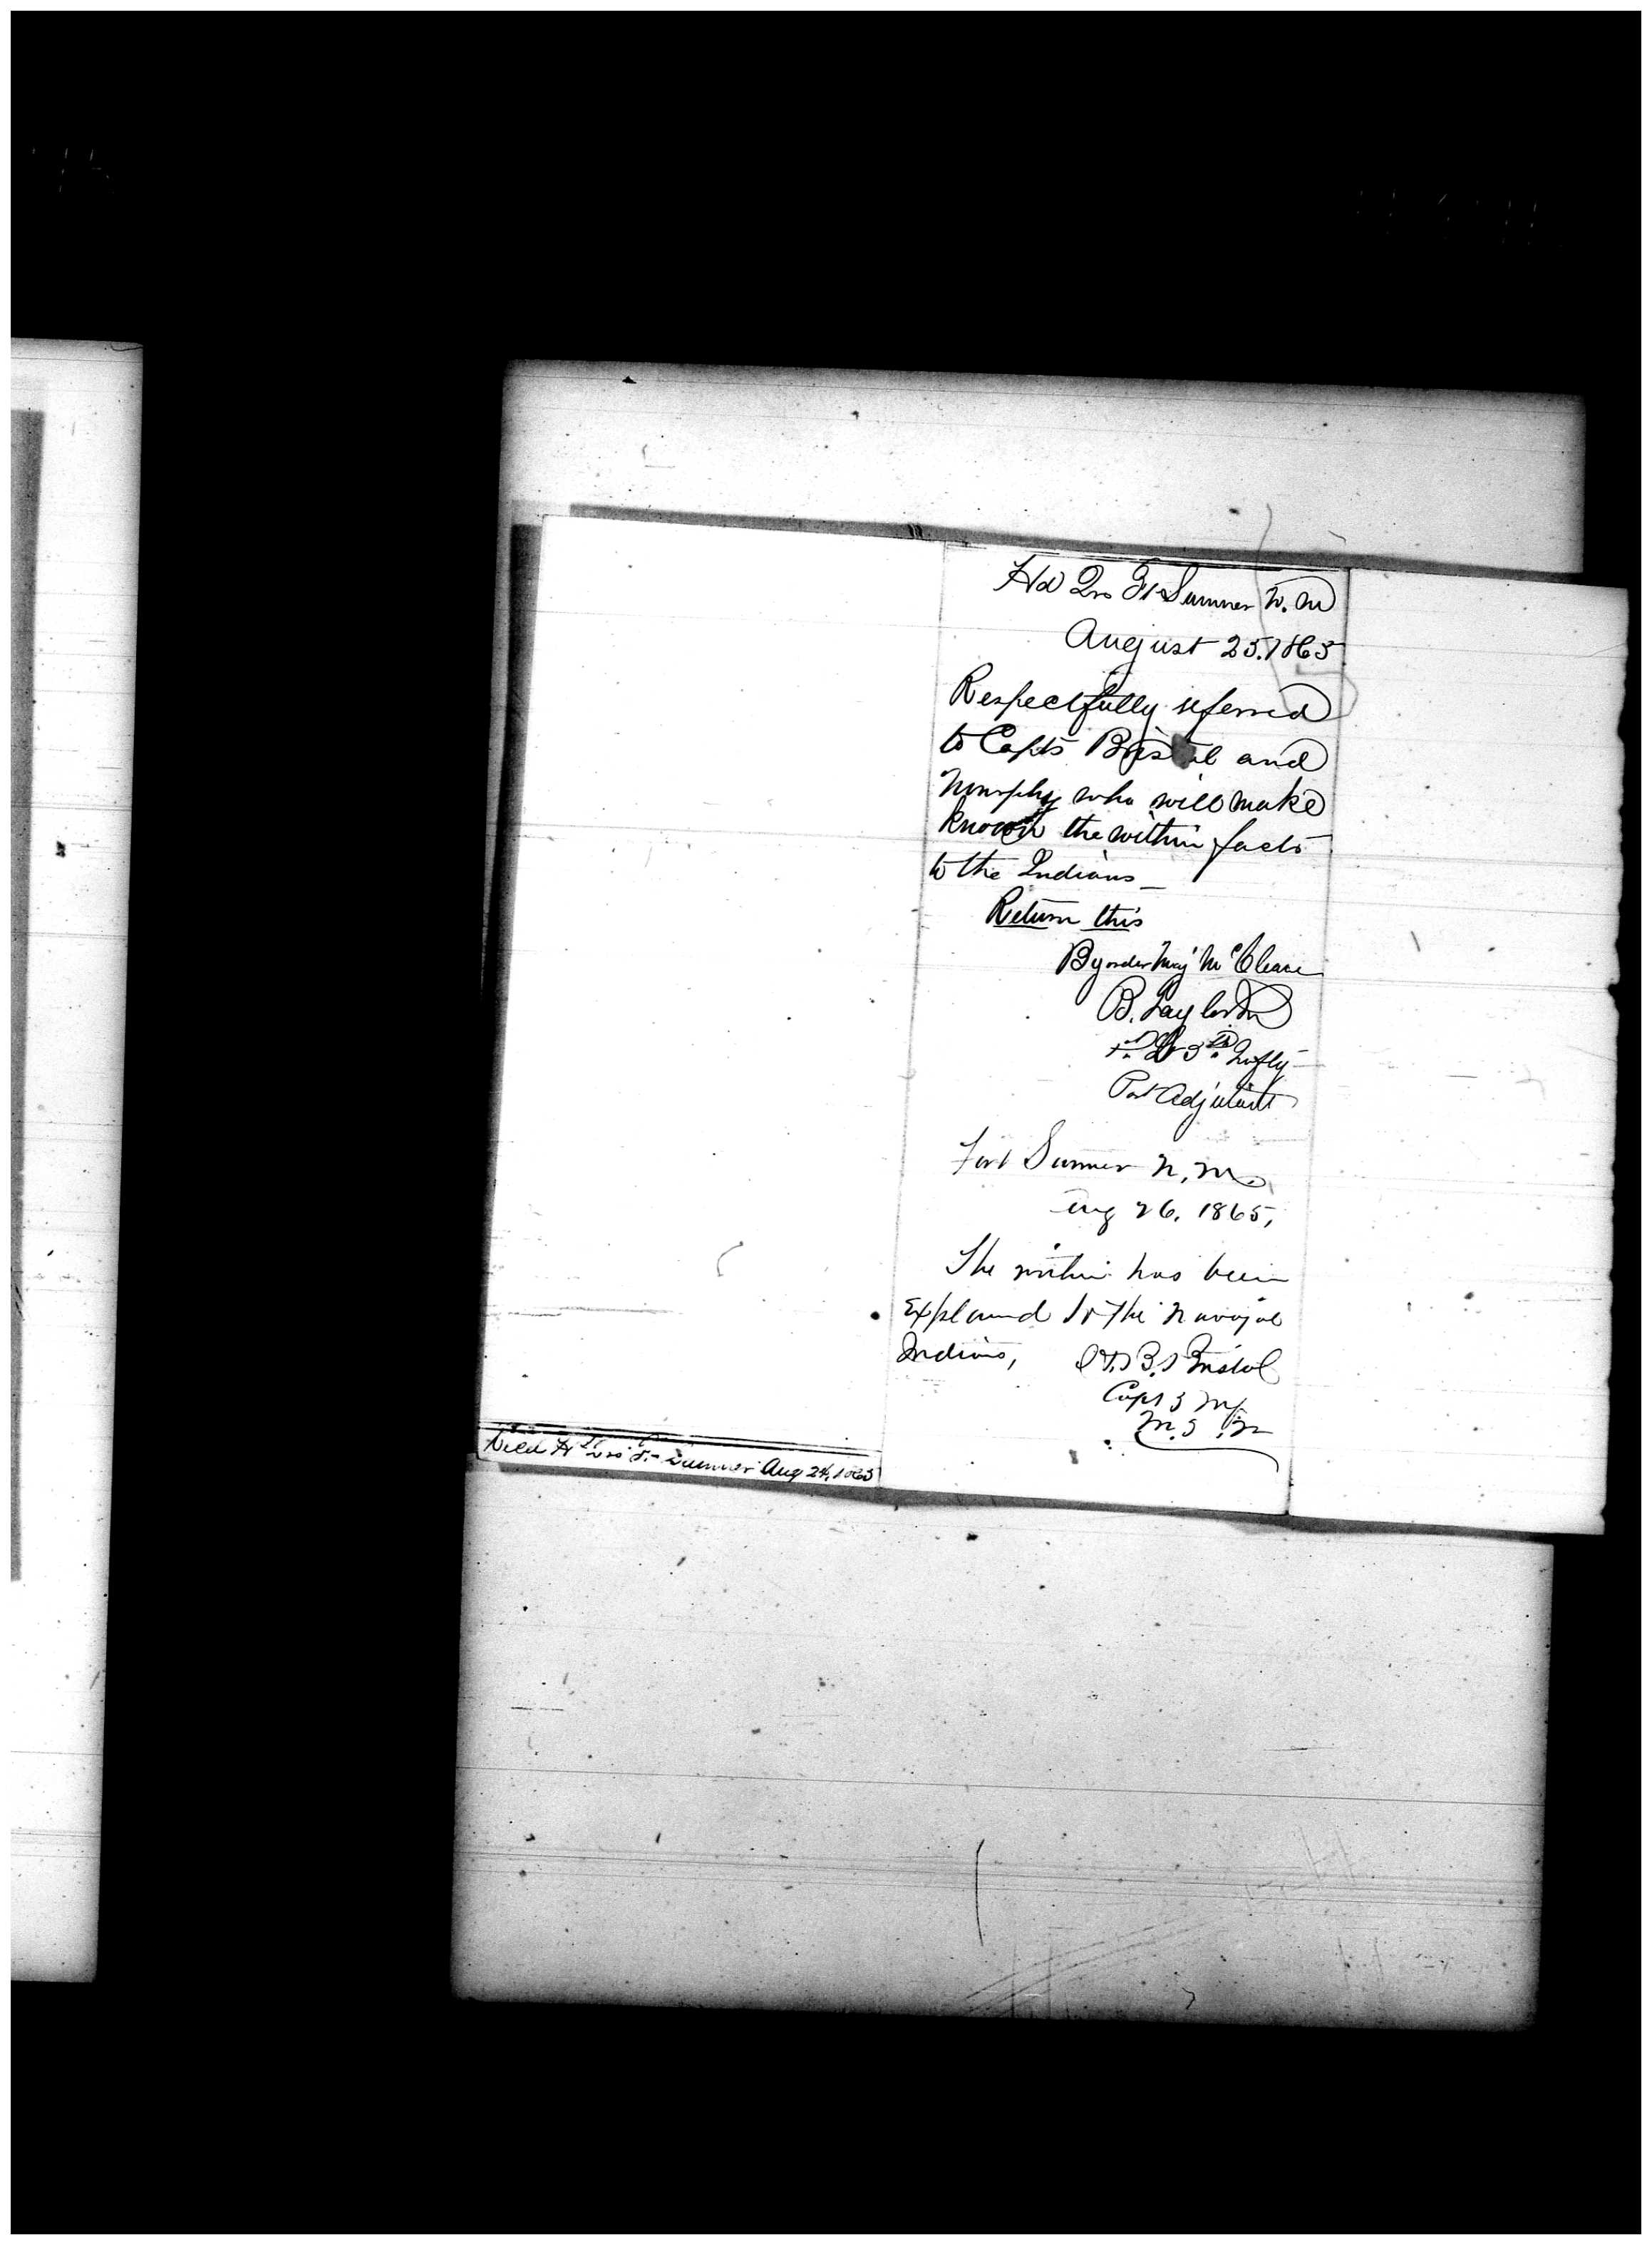 Hd Qrs Ft Sumner N. M
August 25. 1865
Respectfully referred
to Capts Bristol and
Murphy who will make
known the within facts
to the Indians—
Return this
By order Maj McCleave
B. Taylor Jr
5th Infty
Post Adjutant
Fort Sumner N. M.
Aug 26. 1865,
The within has been
Explained to the Navajoe
Indians, H. B. Bristol
Capt 5 Inf
Recd Hd Qrs Ft Sumner Aug 24, 1865